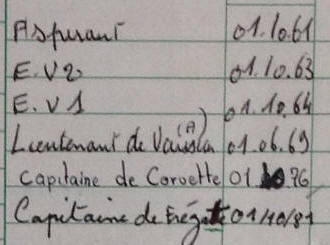 Aspirant 01.10.61
E.V2 01.10.63
E.V1 01.10.64
Lieutenant de Vaisseau (A) 01.06.69
Capitaine de Corvette 01.10.76
Capitaine de Frégate 01/10/81